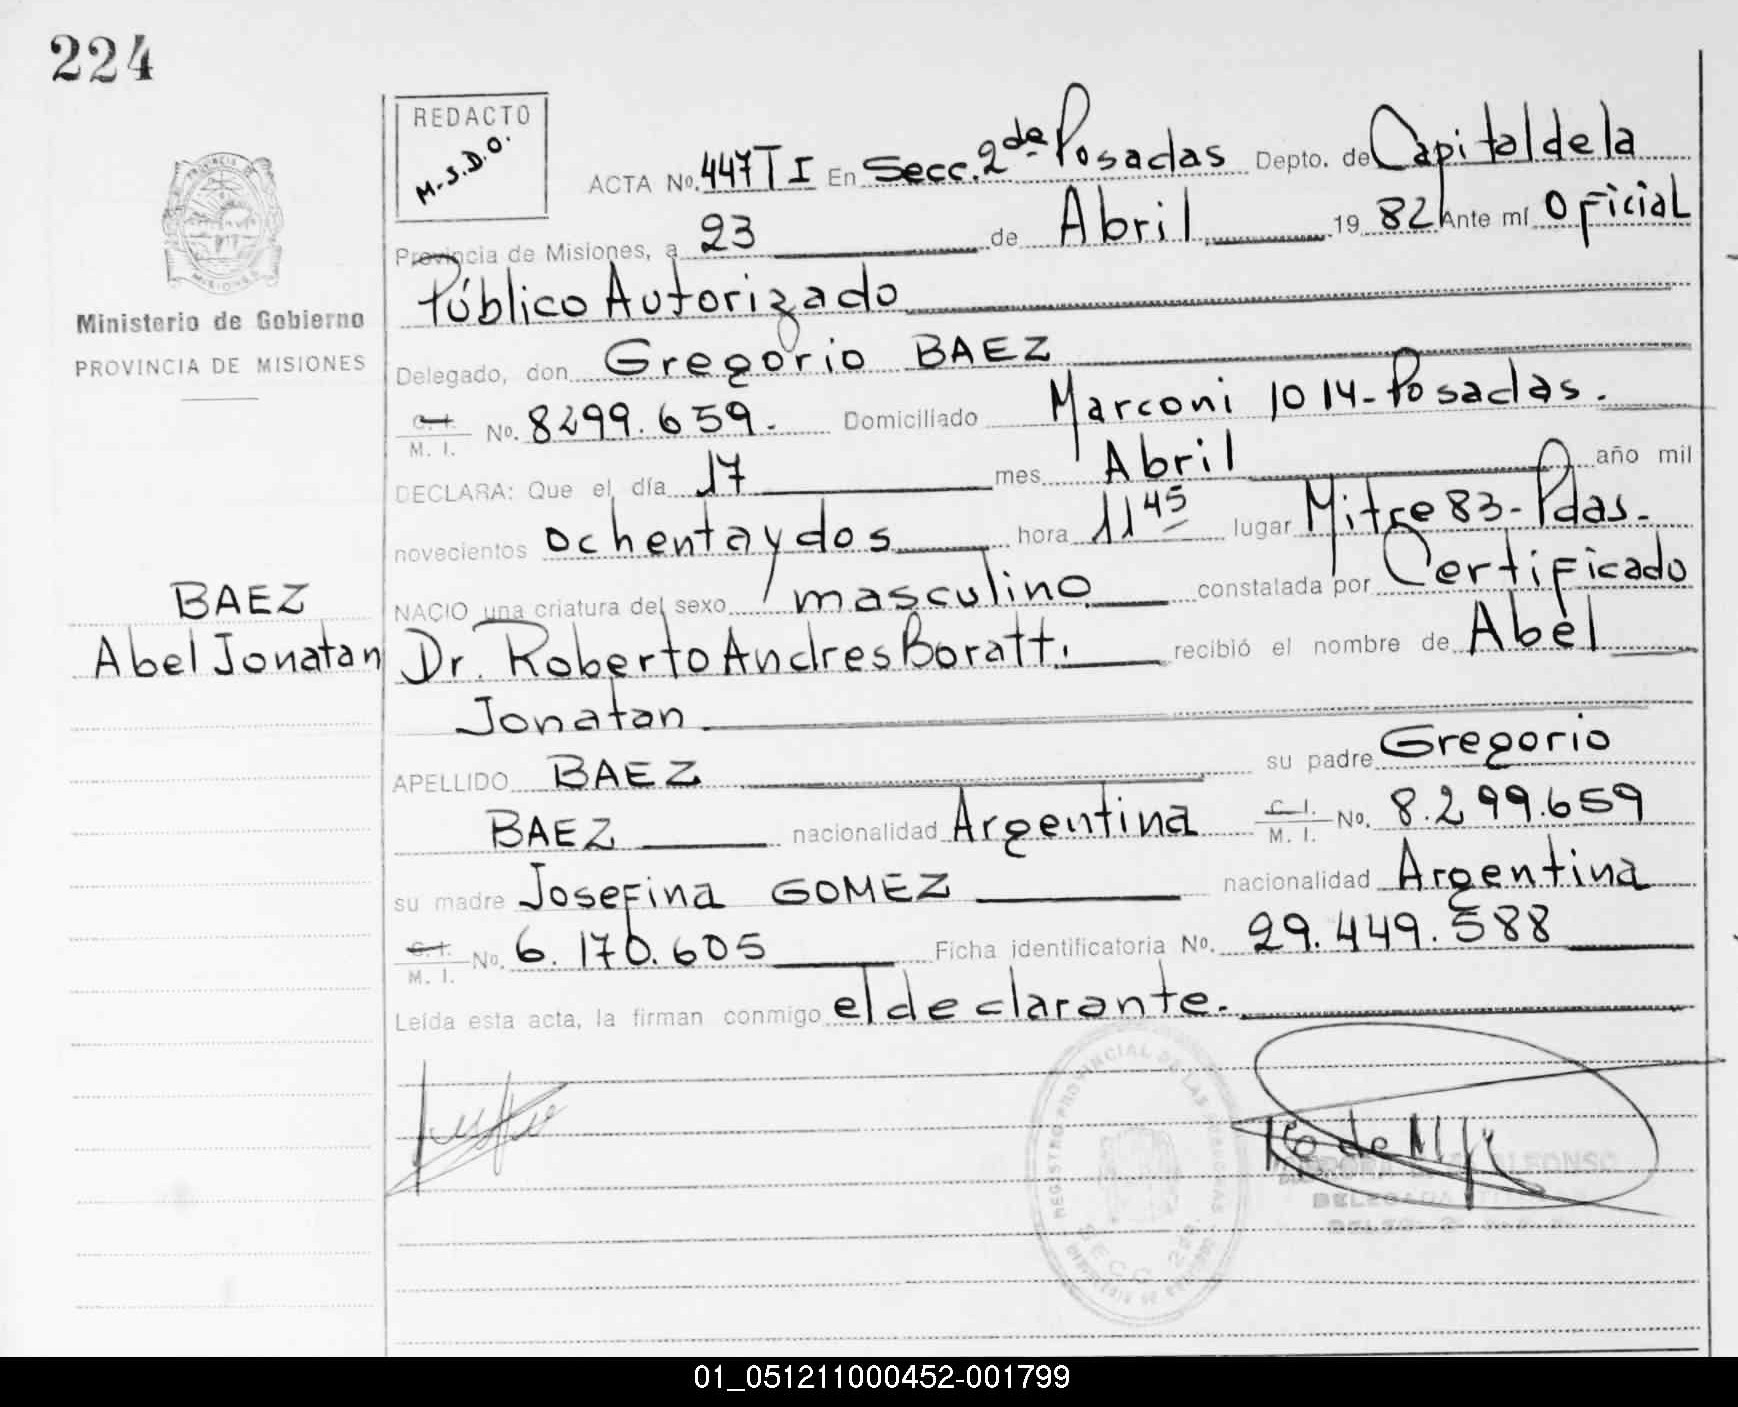 224
REDACTO
M.S.D.O.
ACTA No. 447 T I En Secc. 2da Posadas Depto. de Capital de la
Provincia de Misiones, a 23 de Abril 19 82 Ante mí Oficial
Público Autorizado
Ministerio de Gobierno
PROVINCIA DE MISIONES
Delegado, don Gregorio BAEZ
C. I. M. I. No. 8299.659. Domiciliado Marconi 1014-Posadas.
DECLARA: Que el día 17 mes Abril año mil
novecientos ochenta y dos hora 11 45 lugar Mitre 83-Pdas.
NACIO una criatura del sexo masculino constatada por Certificado
BAEZ
Abel Jonatan
Dr. Roberto Andres Boratti recibió el nombre de Abel
Jonatan
APELLIDO BAEZ su padre Gregorio
BAEZ nacionalidad Argentina C. I. M. I. No. 8.299.659
su madre Josefina GOMEZ nacionalidad Argentina
C. I. M. I. No. 6.170.605 Ficha identificatoria No. 29.449.588
Leída esta acta, la firman conmigo el declarante.
REGISTRO PROVINCIAL DE LAS PERSONAS
SECC. 2da.
DELEGADA
01_051211000452-001799